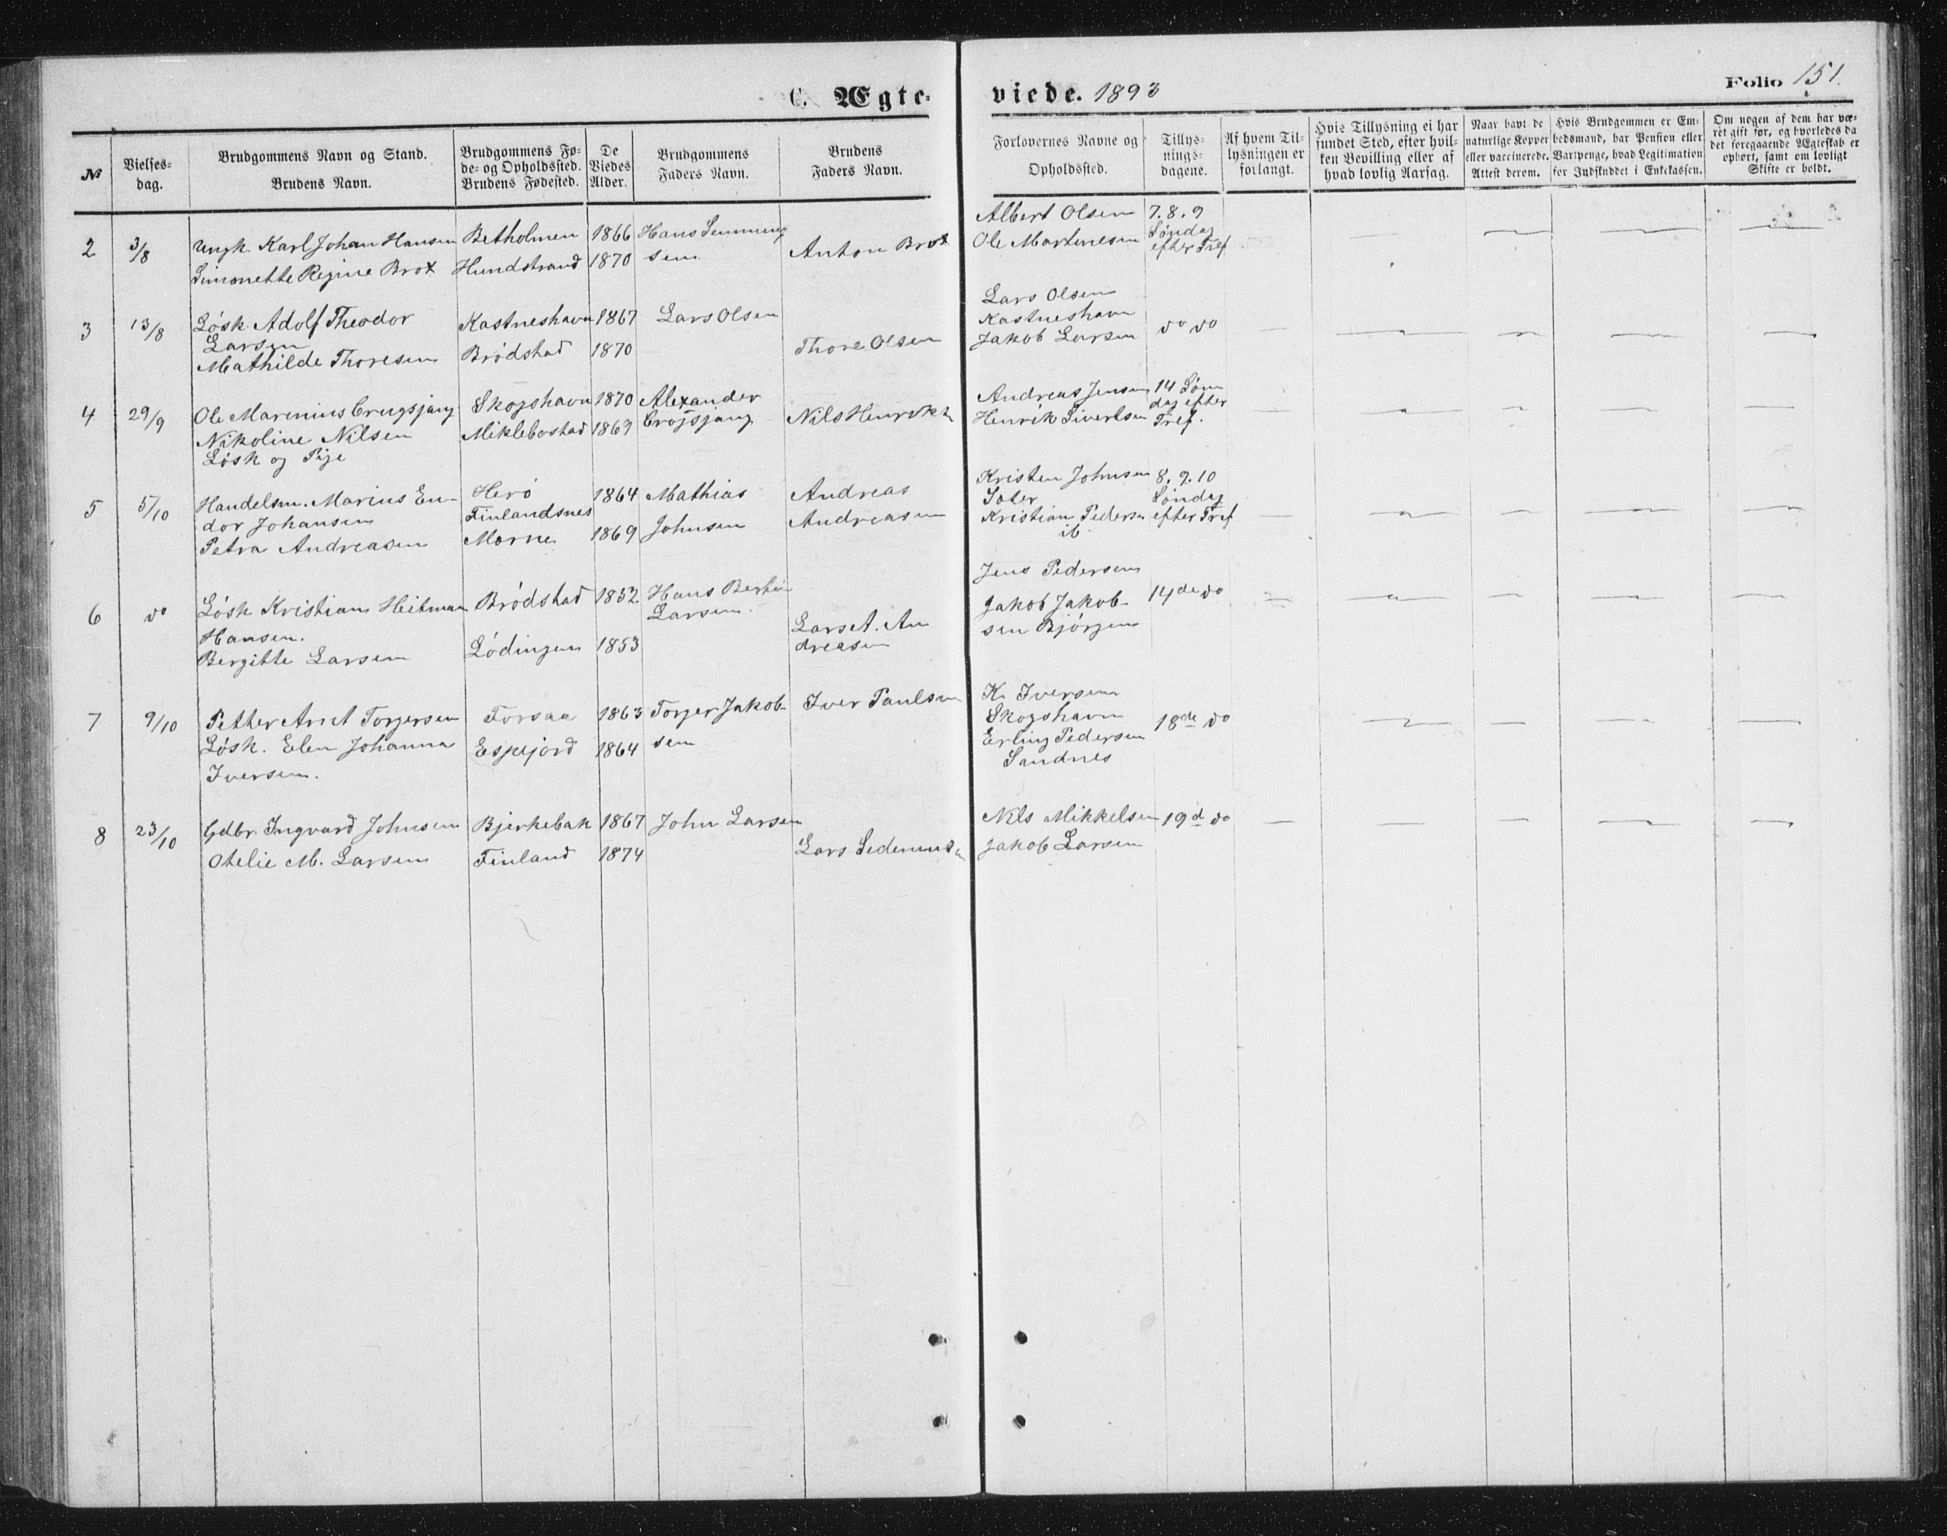 C. Ægte-
viede. 1893
Folio 151.
No
Vielses-
dag.
Brudgommens Navn og Stand.
Brudens Navn.
Brudgommens Fø-
de- og Opholdssted.
Brudens Fødested.
De
Viedes
Alder.
Brudgommens
Faders Navn.
Brudens
Faders Navn.
Forlovernes Navne og
Opholdssted.
Tillys-
nings-
dagene.
Af hvem Til-
lysningen er
forlangt.
Hvis Tillysning ei har
fundet Sted, efter hvil-
ken Bevilling eller af
hvad lovlig Aarsag.
Naar havt de
naturlige Kopper
eller vaccinerede.
Attest derom.
Hvis Brudgommen er Em-
bedsmand, har Pension eller
Vartpenge, hvad Legitimation
for Indskuddet i Enkekassen.
Om nogen af dem har væ-
ret gift før, og hvorledes da
det foregaaende Ægteskab er
ophørt, samt om lovligt
Skifte er holdt.
2 3/8 Ungk. Karl Johan Hansen Betholmen 1866 Hans Senning Albert Olsen 7. 8. 9
Simonette Regine Brox Hundstrand 1870 sen Anton Brox Ole Martinesen Søndag
efter Tref
3 13/8 Løsk. Adolf Theodor Kastneshavn 1867 Lars Olsen Lars Olsen
Larsen Kastneshavn
Mathilde Thoresen Brødstad 1870 Thore Olsen Jakob Larsen do do
4 29/9 Ole Marinius Crugsjang Skogshavn 1870 Alexander Andreas Jensen 14 Søn
Nikoline Nilsen Miklebostad 1869 Crogsjang Nils Henrik Henrik Sivertsen dag efter
Løsk og Pige Tref.
5 5/10 Handelsm. Marius En- Herø 1864 Mathias Andreas Kristen Johnsen 8. 9. 10
dor Johansen Finlandsnes Søter Søndag
Petra Andreasen Morne 1869 Johnsen Andreasen Kristian Peders efter Tref
ib.
6 do Løsk Kristian Heitman Brødstad 1852 Hans Bertin Jens Pedersen
Hansen. Larsen. Jakob Jakob- 14de do
Bergitte Larsen Lødingen 1853 Lars A. An sen Bjørgen
dreasen
7 9/10 Petter Arnt Torgersen Forsaa 1863 Torger Jakob- Iver Paulsen K. Iversen
Løsk. Elen Johanna Espejord 1864 sen Skogshavn 18de do
Iversen. Erling Pedersen
Sandnes
8 23/10 Gdbr. Ingvard Johnsen Bjerkebak 1867 John Larsen Nils Mikkelsen 19d do
Otelie M. Larsen Finland 1874 Lars Jakob Larsen